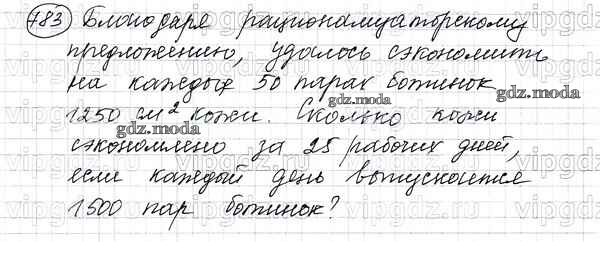 783 Благодаря рационализаторскому
предложению, удалось сэкономить
на каждых 50 парах ботинок
1250 см² кожи. Сколько кожи
сэкономлено за 25 рабочих дней,
если каждый день выпускается
1500 пар ботинок?